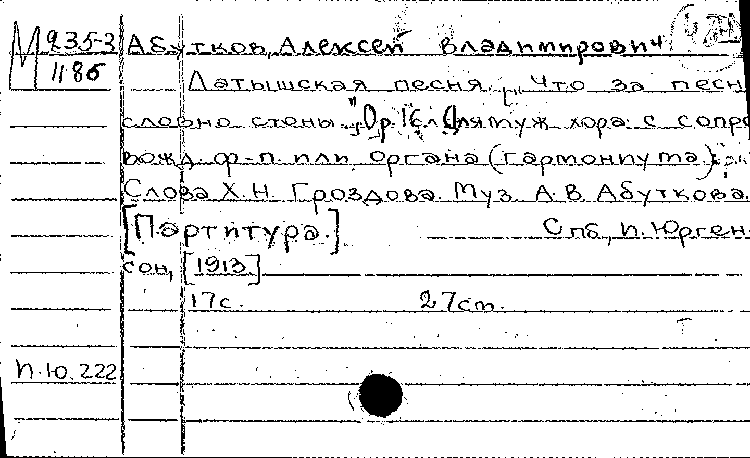 М 935-3 Абутков, Алексей Владимирович
1186 Латышская песня. "Что за песн
словно стоны..." Ор. 16. Для муж хора с сопро
вожд. ф-п. или органа (гармониума).
Слова Х. Н. Гроздова. Муз. А. В. Абуткова.
[Партитура.] Спб, П. Юрген
сон, [1913]
17с. 27 см.
П. Ю. 222